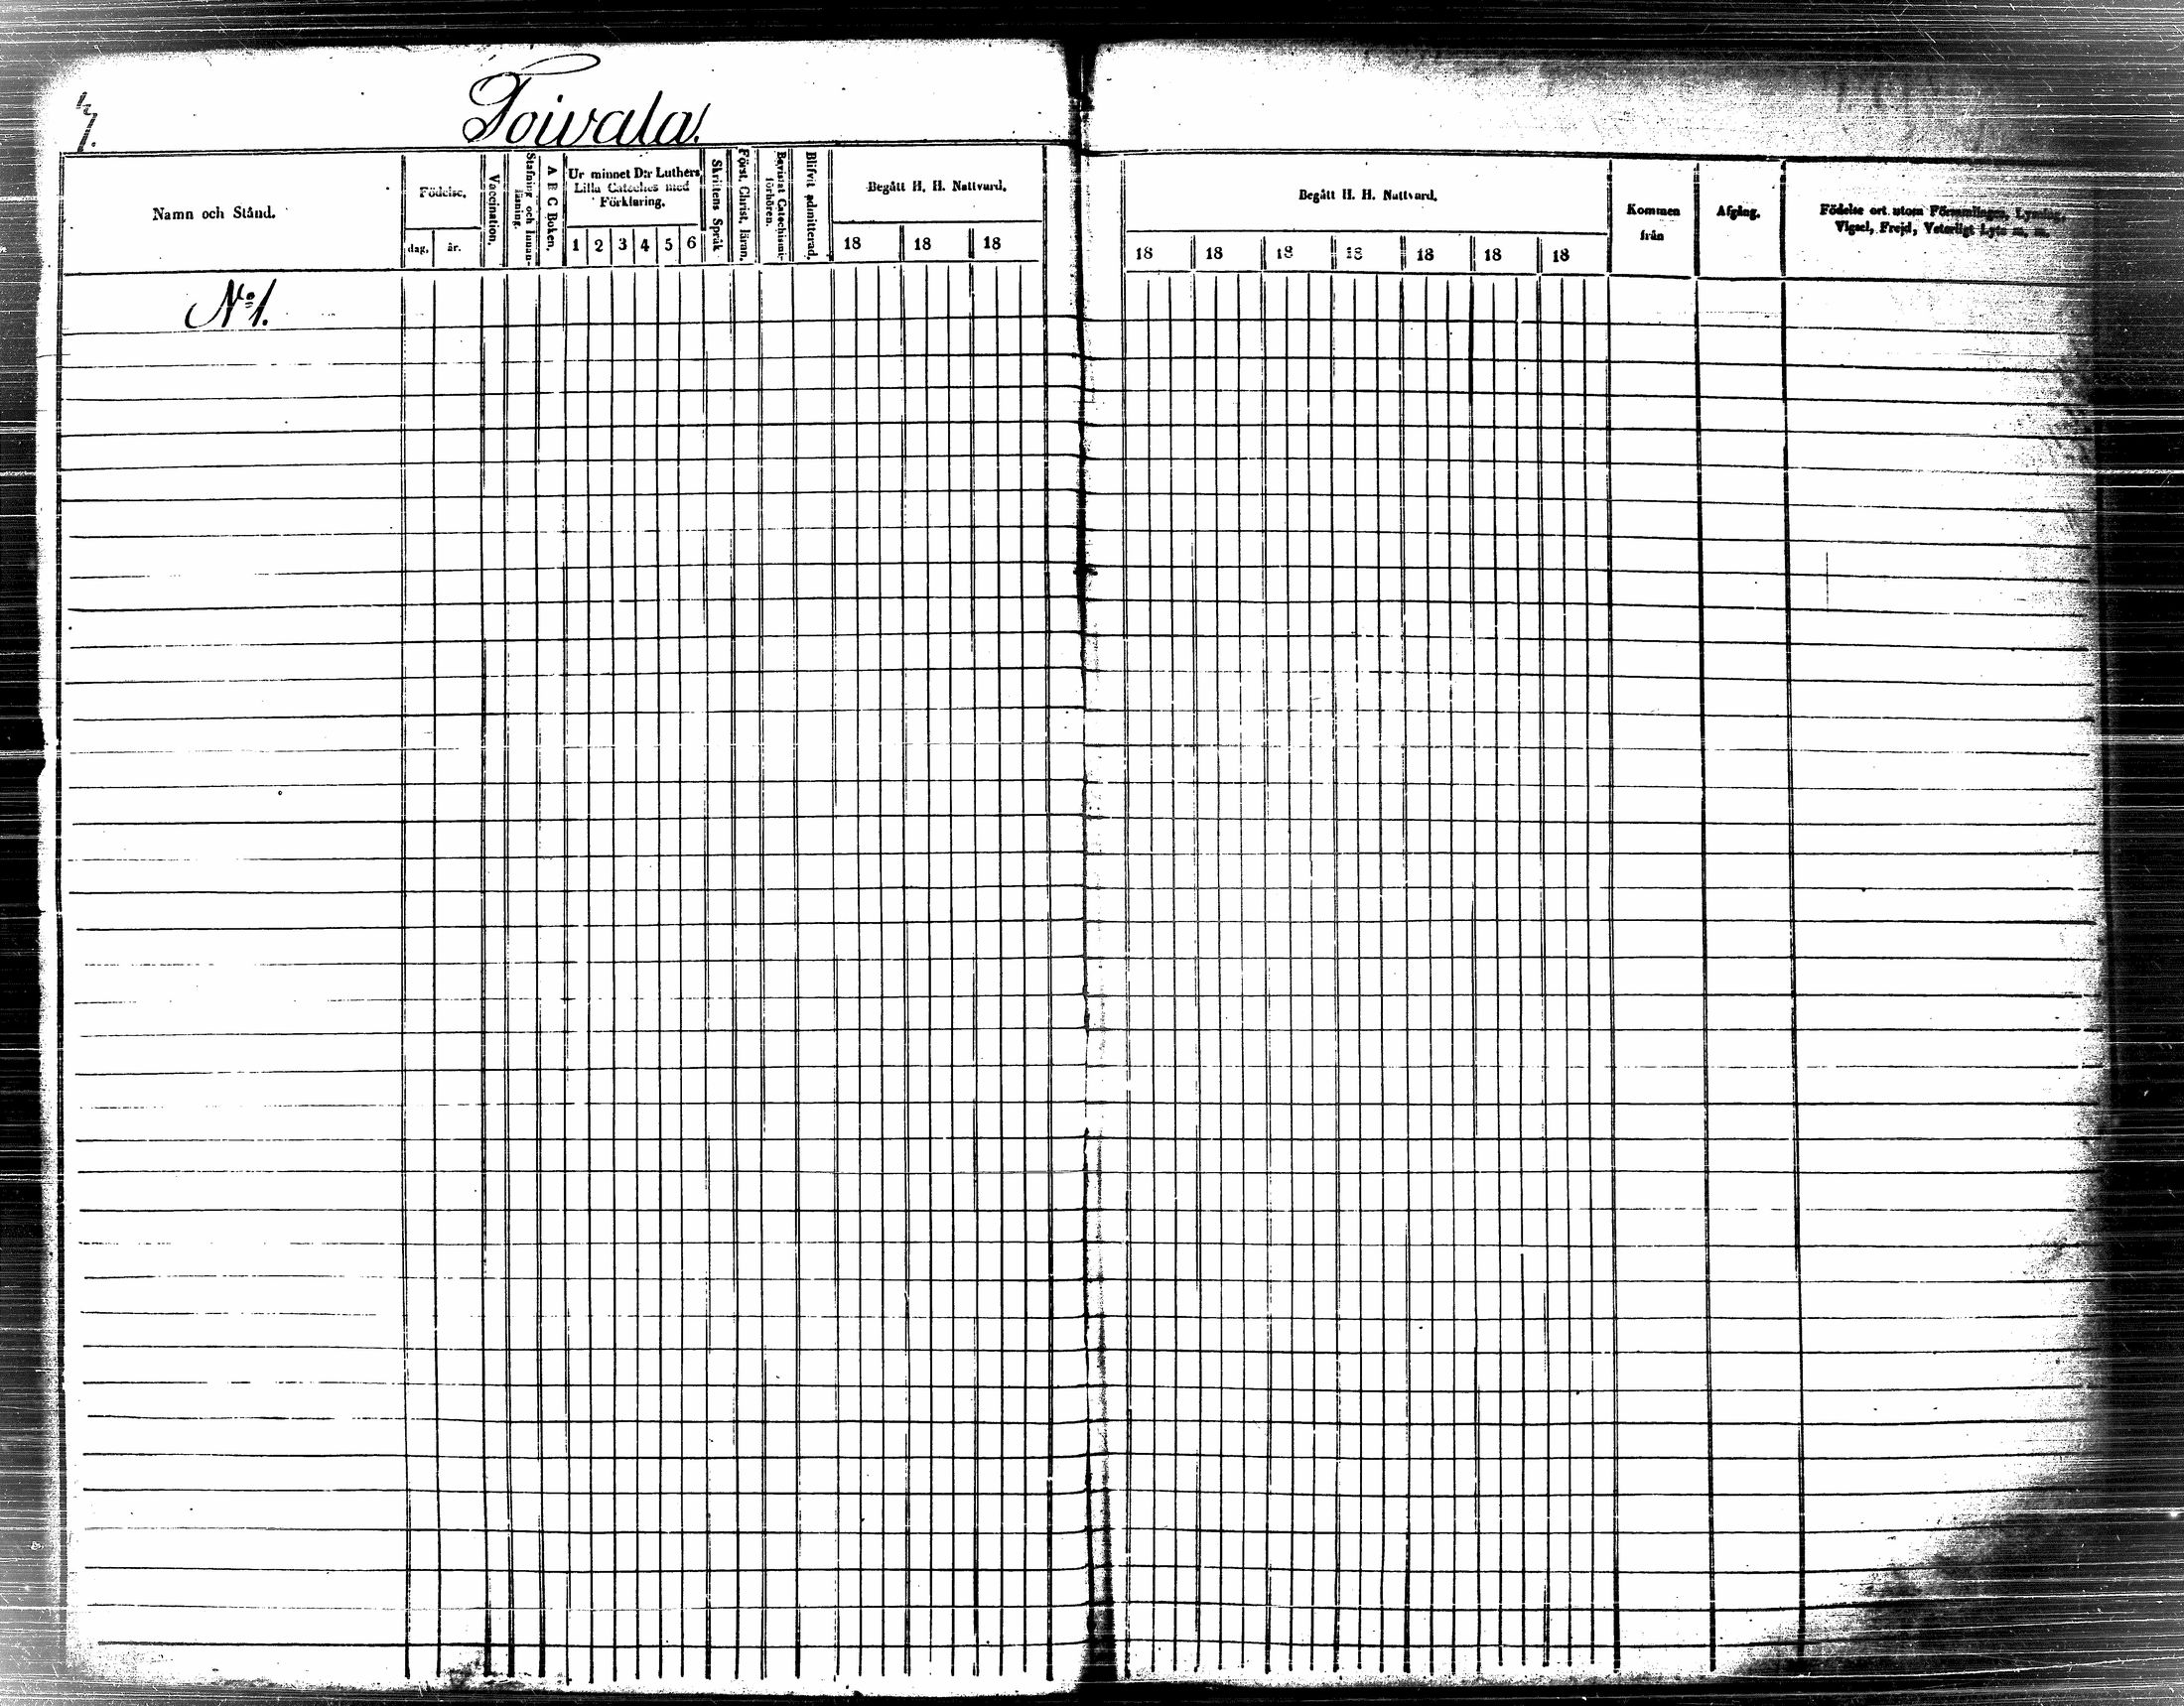 Toivala.
Namn och Stånd.
Födelse.
dag.
år.
Vaccination.
Stafning och Innan-
läsning.
A B C Boken.
Ur minnet D:r Luthers
Lilla Cateches med
Förklaring.
1 2 3 4 5 6
Skriftens Språk
Först. Christ. läran.
Bevistat Catechismi-
förhören.
Blifvit admitterad.
Begått H. H. Nattvard.
18 18 18
Begått H. H. Nattvard.
18 18 18 18 18 18 18
Kommen
från
Afgång.
Födelse ort utom Församlingen, Lysning,
Vigsel, Frejd, Veterligt Lyte m. m.
No 1.